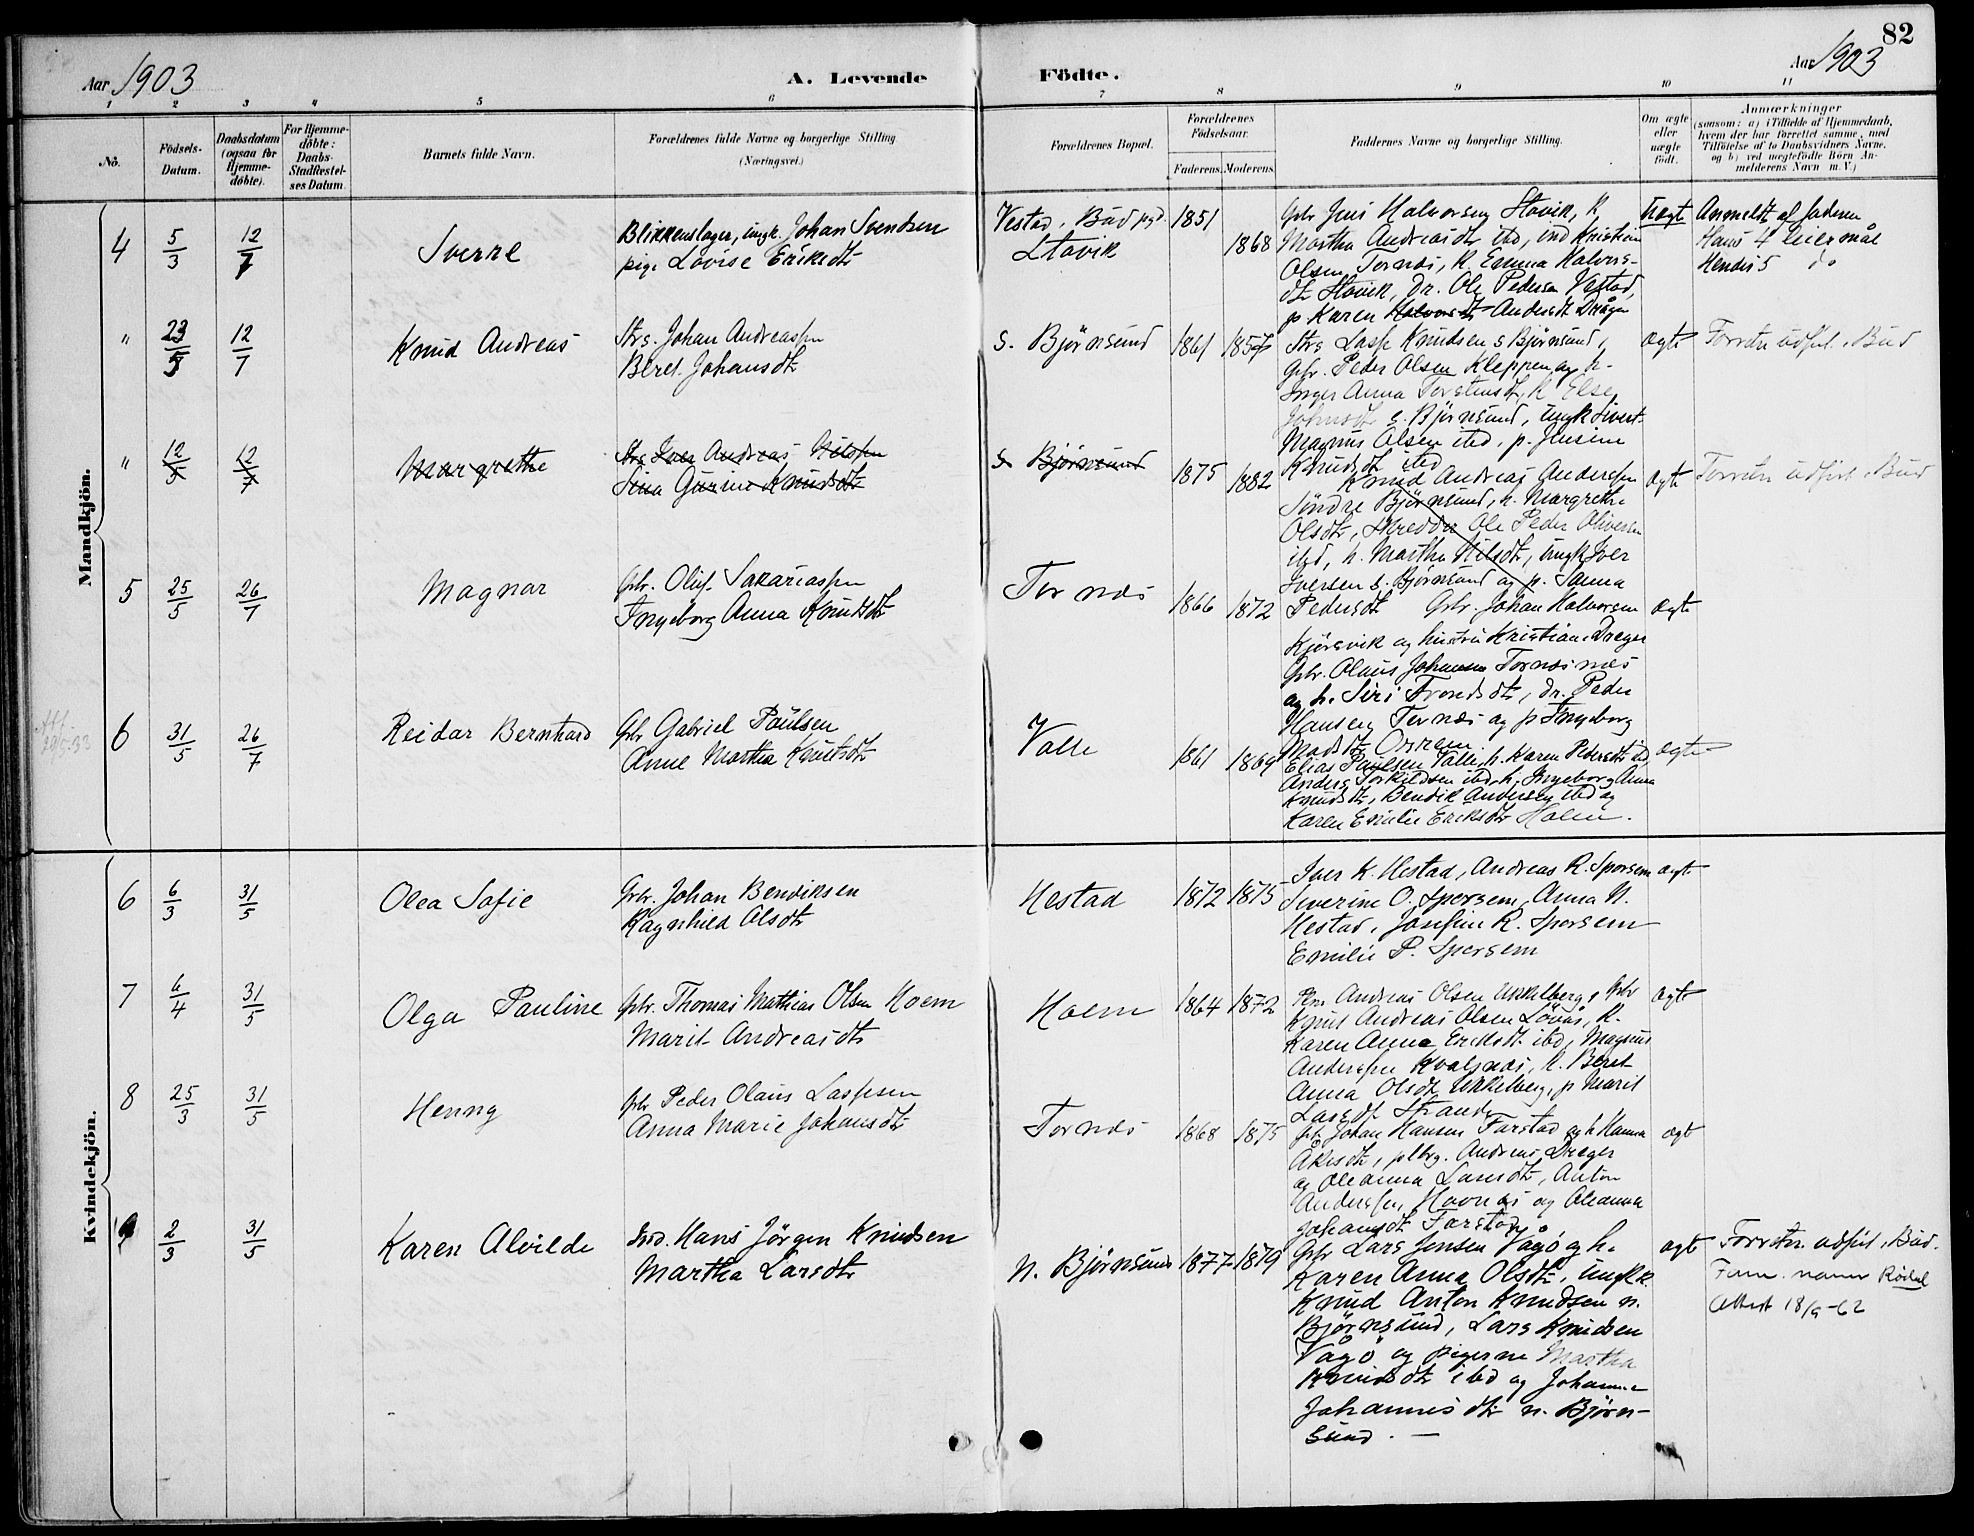 82
Aar 1903
A. Levende Födte.
Aar 1903
1 2 3 4 5 6 7 8 9 10 11
No.
Födsels-Datum.
Daabsdatum (ogsaa for Hjemme-döbte).
For Hjemme-döbte: Daabs-Stadfæstel-ses Datum
Barnets fulde Navn.
Forældrenes fulde Navne og borgerlige Stilling
(Næringsvei.)
Forældrenes Bopæl.
Forældrenes Födselsaar.
Faderens. Moderens.
Faddernes Navne og borgerlige Stilling.
Om ægte eller uægte födt.
Anmærkninger
(saasom: a) i Tilfælde af Hjemmedaab,
hvem der har forrettet samme, med
Tilföielse af to Daabsvidners Navne,
og b) ved uægtefödte Börn An-
melderens Navn m. V.)
Mandkjön.
4 5/3 12/7 Sverre
Blikkenslager, ungk. Johan Svendsen
pige Lovise Eriksdtr
Vestad, Bud pgd.
Stavik
1851 1868
Gbr Jens Halvorsen Stavik, k.
Martha Andreasdtr ibd, ind Kristian
Olsen Tornes, k. Emma Halvors-
dtr Stavik, dr. Ole Pedersen Vestad,
p Karen Halvorsdt Andersdt Dråge
uægt
Anmeldt af faderen
Hans 4 leiermål
Hendes 5 do
" 23/5 12/7 Knud Andreas
Strs. Johan Andreassen
Beret Johansdtr
S. Björnsund 1861 1857
Strs Lasse Knudsen s Björnsund,
Gbr. Peder Olsen Kleppen og h.
Inger Anna Torstensdt, k Else
Johnsdt s. Björnsund, ungk Sivert
Magnus Olsen ibd, p. Jensine
Knudsdt ibd
ægte Forretn udfört i Bud
" 12/5 12/7 Margrethe
Strs Iver Andreas Nilssen
Sina Gurine Knudsdtr
S Björnsund 1875 1882
Knud Andreas Anderssen
Söndre Björnsund, h. Margrethe
Olsdtr, Skredder Ole Peder Oliversen
ibd, h. Martha Nilsdt, ungk Iver
Iversen s. Björnsund og p. Sanna
Pedersdt
ægte Forretn udfört i Bud
5 25/5 26/7 Magnar
Gbr. Oluf Sakariassen
Ingeborg Anna Knudsdtr
Tornes 1866 1872
Gbr. Johan Halvorsen
Kjörsvik og hustru Kristiane Dræger
Gbr. Olaus Johansen Tornesnes
og h. Siri Trondsdt, dr. Peder
Hansen Tornes og p Ingeborg
Madsdt
ægte
6 31/5 26/7 Reidar Bernhard
Gbr Gabriel Paulsen
Anne Martha Knudsdtr
Valle 1861 1869
Elias Paulsen Valle, h. Karen Pedersdt ibd,
Anders Torkildsen ibd, h. Ingeborg Anna
Knudsdt, Bendik Andersen ibd og
Karen Emilie Eriksdtr Holen.
ægte
Kvindekjön.
6 6/3 31/5 Olea Sofie
Gbr. Johan Bendiksen
Ragnhild Olsdtr
Hestad 1872 1875
Iver K. Hestad, Andreas R. Sporsem
Severine O. Sporsem, Anna N.
Hestad, Josefine R. Sporsem
Emilie P. Sporsem
ægte
7 6/4 31/5 Olga Pauline
Gbr. Thomas Mathias Olsen Hoem
Marit Andreasdtr
Hoem 1864 1872
Andreas Olsen Ukkelberg, Gbr
Knut Andreas Olsen Lövås, k.
Karen Anna Eriksdt ibd, Magnus
Anderssen Kvalsnes, k. Beret
Anna Olsdt Ukkelberg, p Marit
Larsdt Strande
ægte
8 25/3 31/5 Henny
Gbr Peder Olaus Lassesen
Anna Marie Johansdtr
Tornes 1868 1875
Gbr Johan Hansen Farstad og h Hanna
Åkesdt, plbrg. Andreas Dræger
og Oleanna Larsdt, Anton
Anderssen, Havnes og Oleanna
Johansdt Farstad
ægt
9 2/3 31/5 Karen Alvilde
Ind. Hans Jörgen Knudsen
Martha Larsdtr
N. Björnsund 1877 1879
Gbr Lars Jensen Vagö og h.
Karen Anna Olsdtr, ungkk.
Knud Anton Knudsen n.
Björnsund, Lars Knudsen
Vågö og pigerne Martha
Knudsdtr ibd og Johanne
Johannesdtr n. Björn-
sund. —
ægt
Forretn. udfört i Bud.
Fam. navn Rödal
Attest 18/9-62